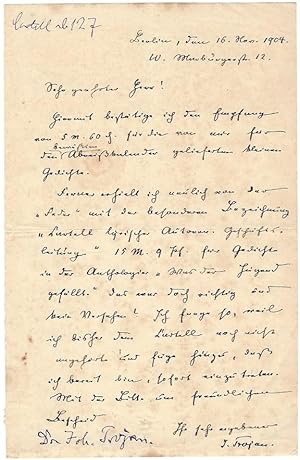 Cartell ab 127
Berlin, den 16. Nov. 1904.
W. Marburgerst. 12.
Sehr geehrter Herr!
Hiermit bestätige ich den Empfang
von 5 M. 60 Pf. für die von mir für
bewußten
den Abreißkalender gelieferten kleinen
Gedichte.
Ferner erhielt ich neulich von der
mit der besonderen Bezeichnung
„Kartell lyrischer Autoren. Geschäfts-
leitung" 15 M. 9 Pf. für Gedichte
in der Anthologie „Was der Jugend
gefällt." das war doch richtig und
kein Versehen? Ich frage so, weil
ich bisher dem Kartell noch nicht
angehört und füge hinzu, daß
ich bereit bin, sofort einzutreten.
Mit der Bitte um freundlichen
Bescheid
Ihr sehr ergebener
J. Trojan.
Dr. Joh. Trojan.